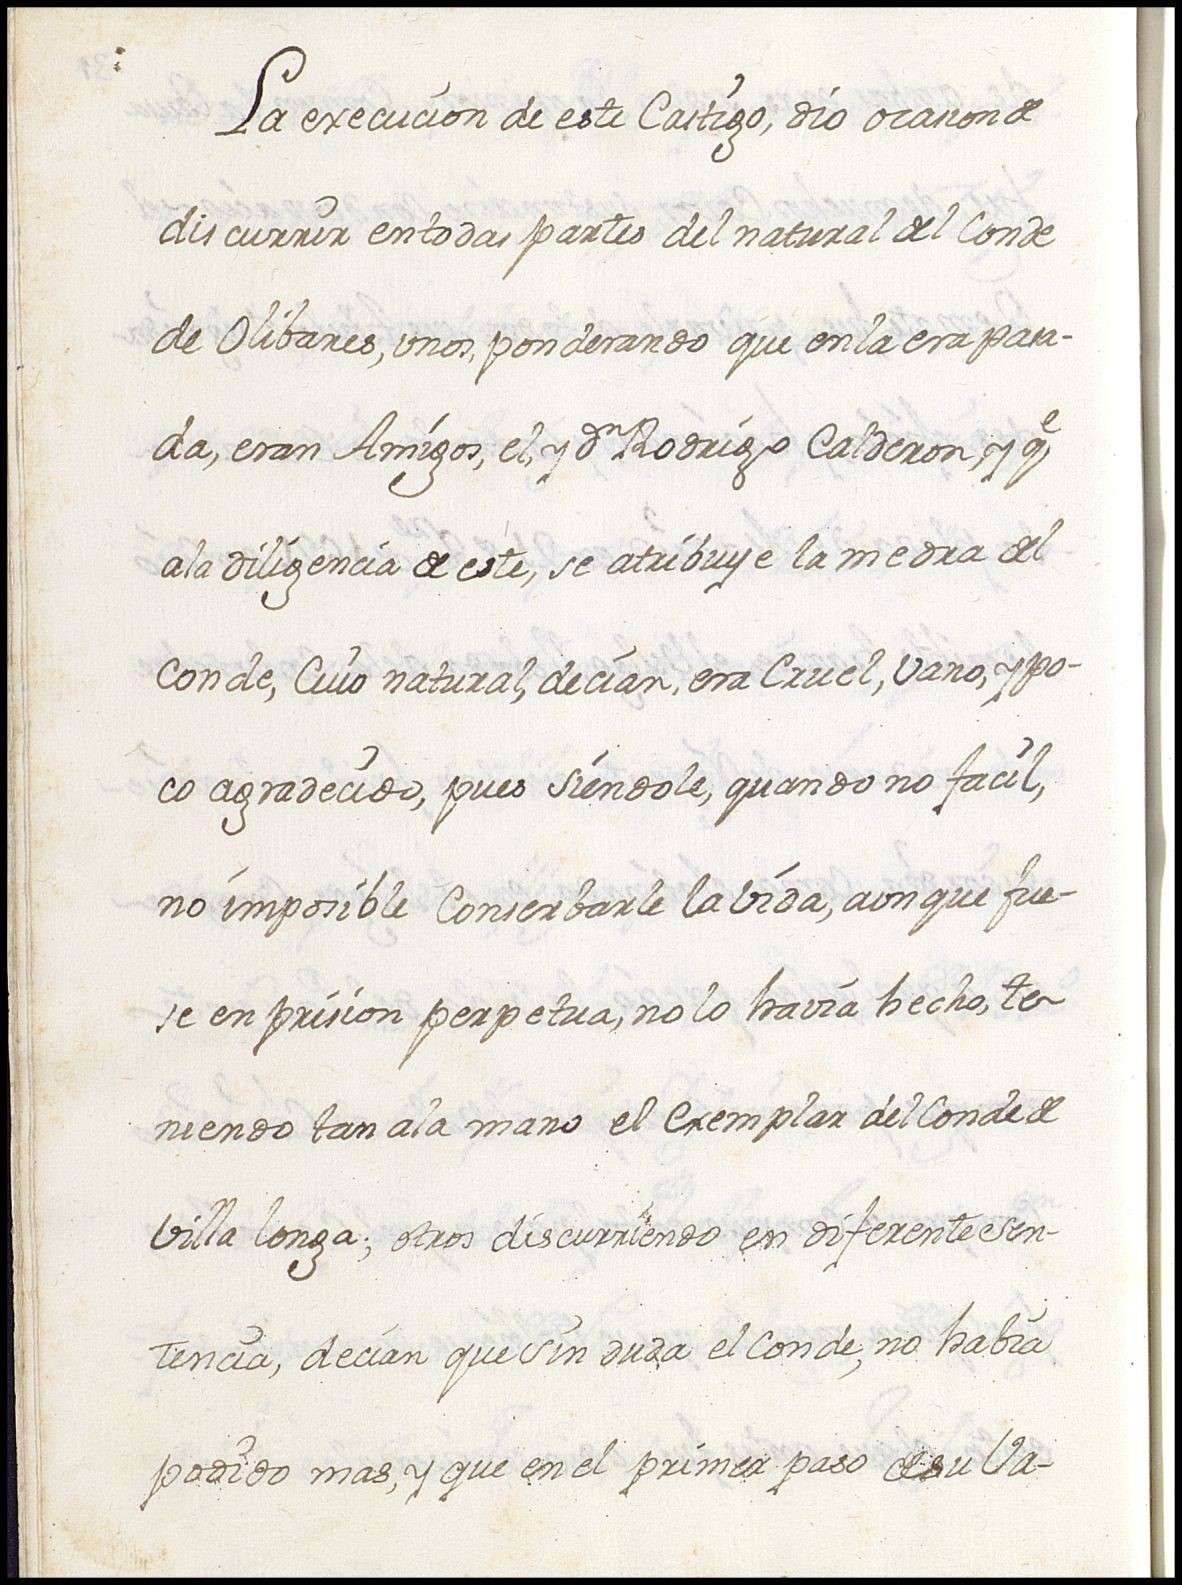 La execucion de este Castigo, dio ocasion de
discurrir en todas partes del natural del Conde
de Olibares, unos, ponderando que en la era pasa-
da, eran Amigos, el, y dn Rodrigo Calderon, y qe
a la diligencia de este, se atribuye la medra del
Conde, Cuio natural, decian, era Cruel, vano, y po-
co agradecido, pues siendole, quando no facil,
no imposible Conserbarle la vida, aunque fue-
se en prision perpetua, no lo havia hecho, te-
niendo tan a la mano el exemplar del Conde de
Villa longa; otros discurriendo en diferente sen-
tencia, decian que sin duda el Conde, no habia
podido mas, y que en el primer paso de su Va-